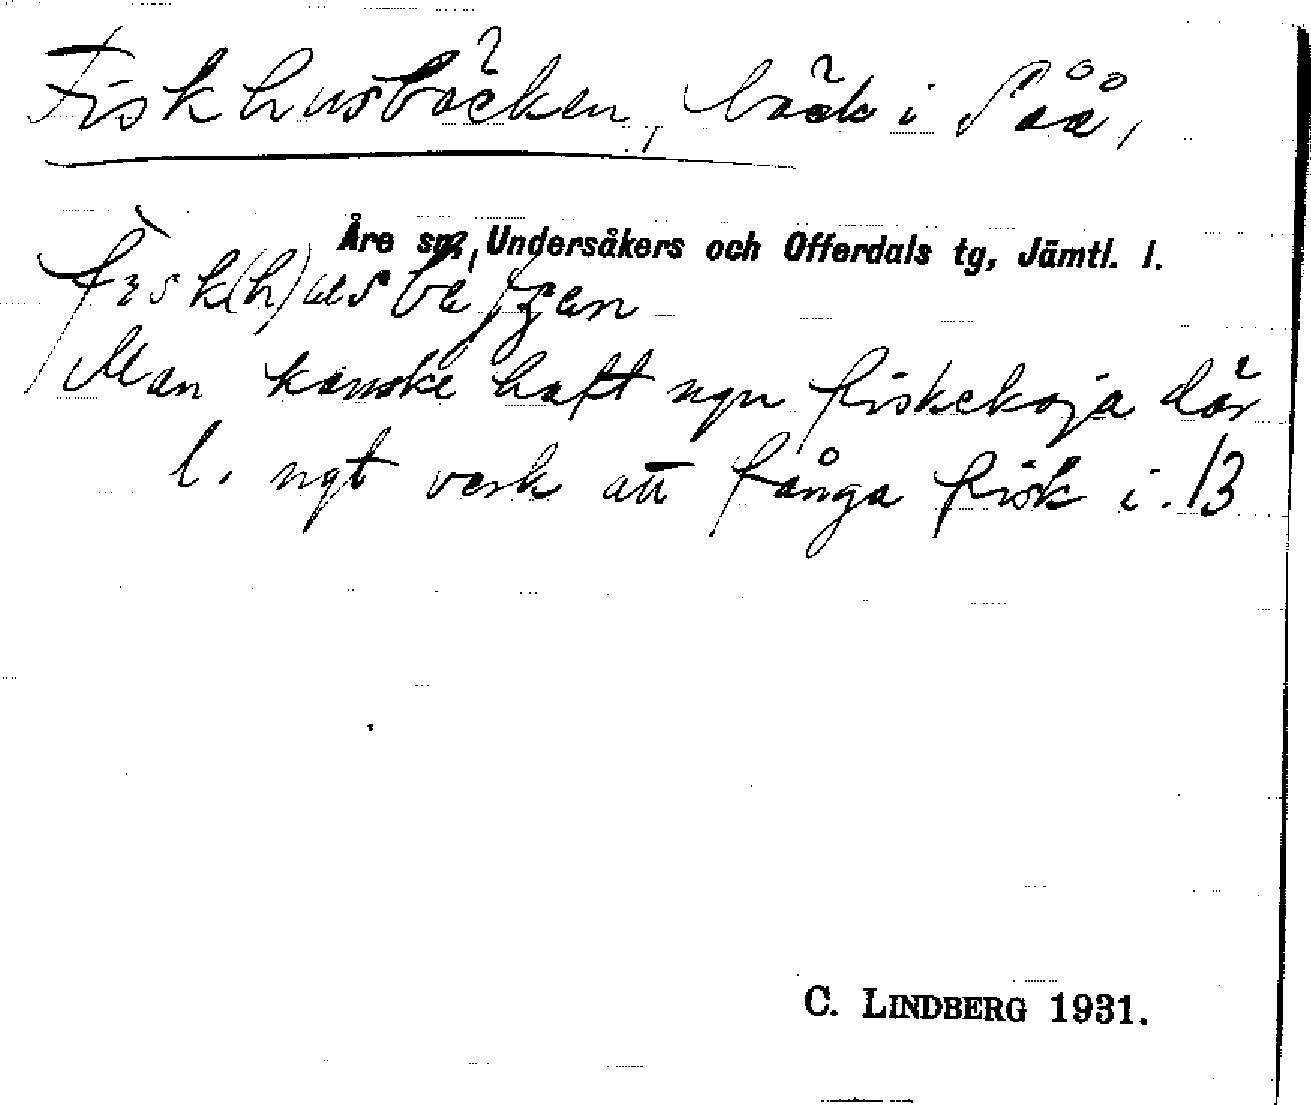 Fiskhusbäcken, bäck i Såå,
Åre sn, Undersåkers och Offerdals tg, Jämtl. l.
Man kanske haft ngn fiskekoja där
l. ngt verk att fånga fisk i. B
C. LINDBERG 1931.